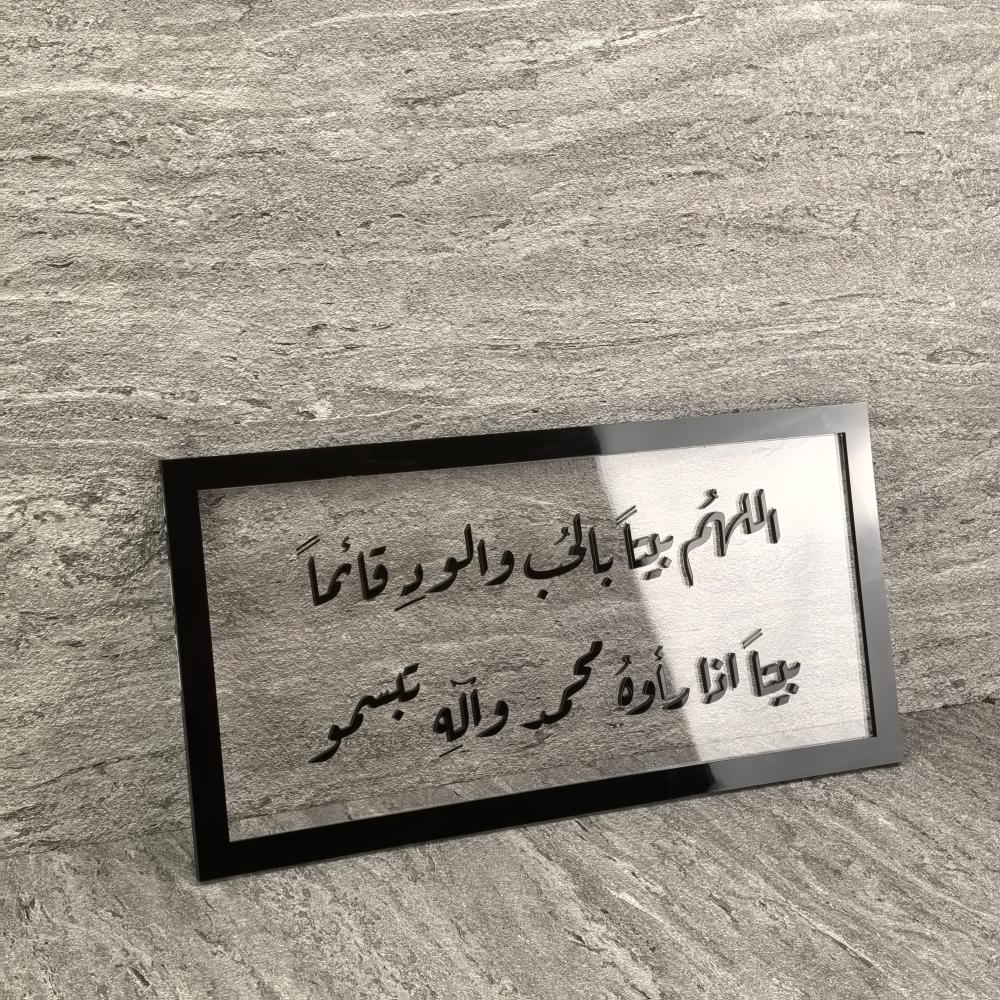 اللهُم بيتاً بالحُب والودِ قائماً
بيتاً اذا رأوهُ محمد وآلهِ تبسمو